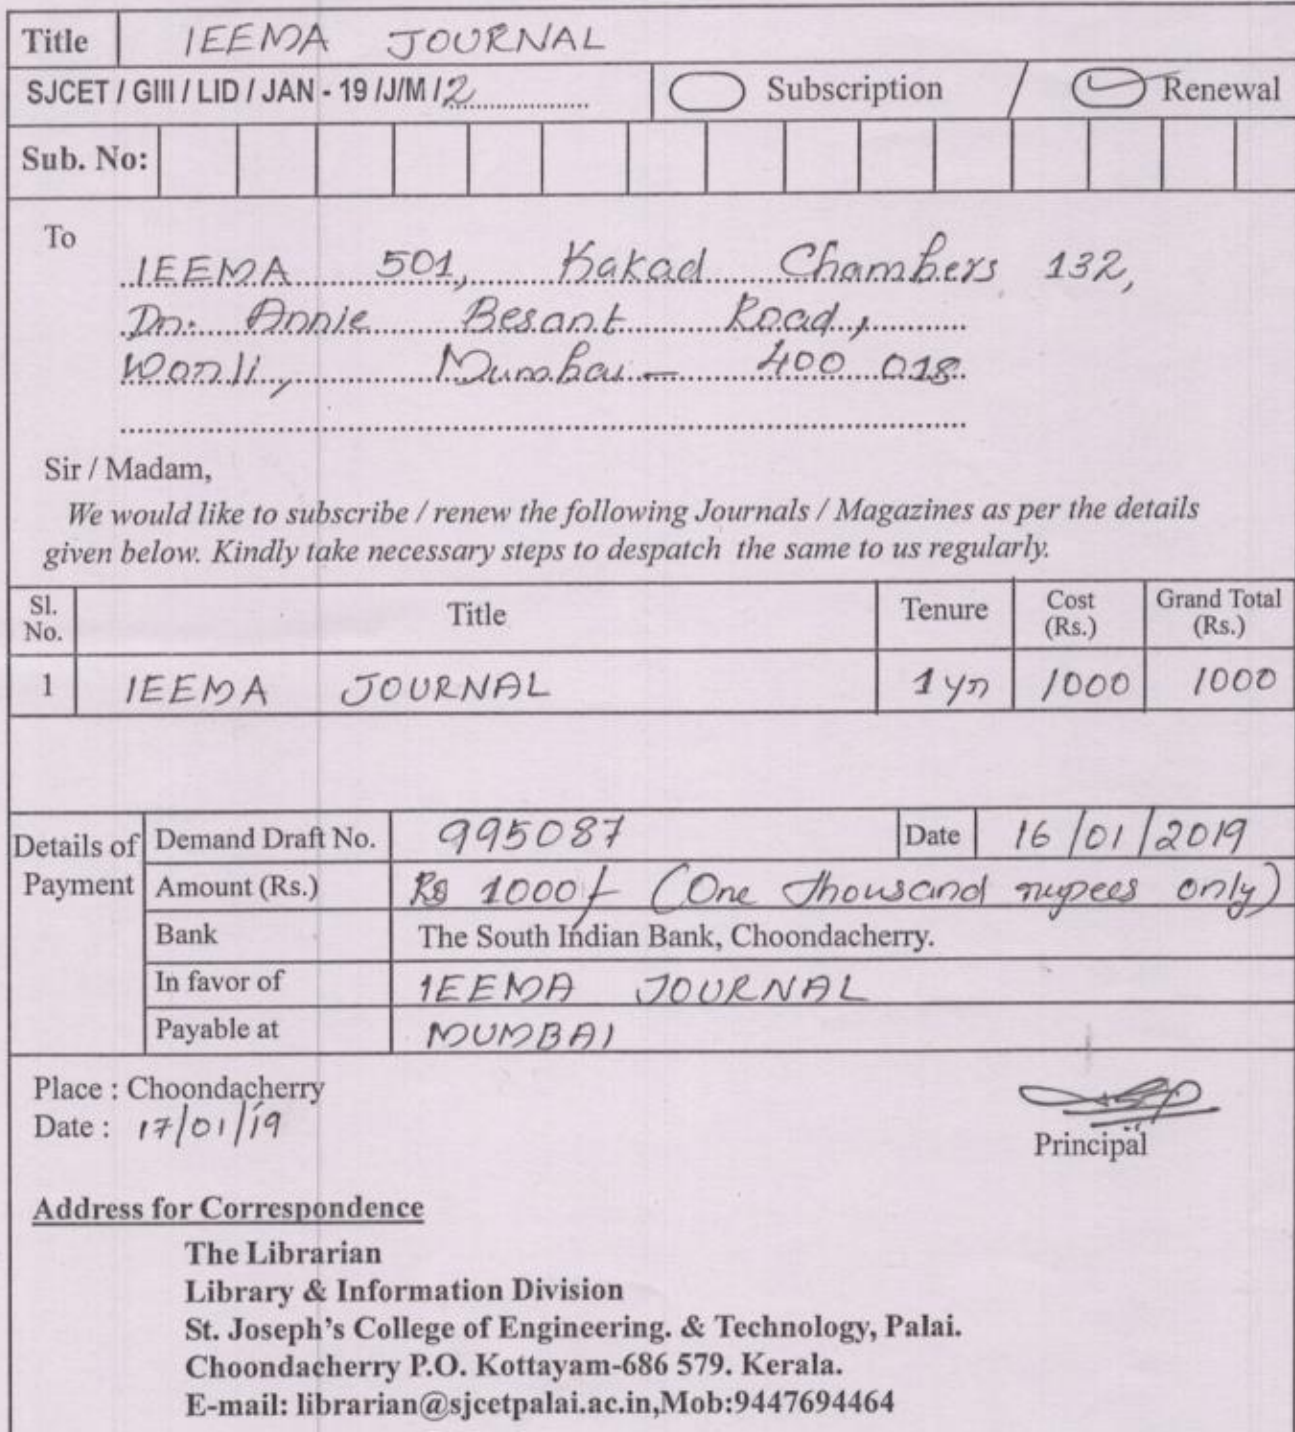 Title IEEMA JOURNAL
SJCET / GIII / LID / JAN - 19 /J/M /2 Subscription / Renewal
Sub. No:
To
IEEMA 501, Kakad Chambers 132,
Dr. Annie Besant Road,
Worli, Mumbai - 400 018
Sir / Madam,
We would like to subscribe / renew the following Journals / Magazines as per the details
given below. Kindly take necessary steps to despatch the same to us regularly.
Sl. No. Title Tenure Cost (Rs.) Grand Total (Rs.)
1 IEEMA JOURNAL 1 yr 1000 1000
Details of Payment
Demand Draft No. 995087 Date 16/01/2019
Amount (Rs.) Rs 1000/- (One thousand rupees only)
Bank The South Indian Bank, Choondacherry.
In favor of IEEMA JOURNAL
Payable at MUMBAI
Place : Choondacherry
Date : 17/01/19
Principal
Address for Correspondence
The Librarian
Library & Information Division
St. Joseph's College of Engineering. & Technology, Palai.
Choondacherry P.O. Kottayam-686 579. Kerala.
E-mail: librarian@sjcetpalai.ac.in,Mob:9447694464